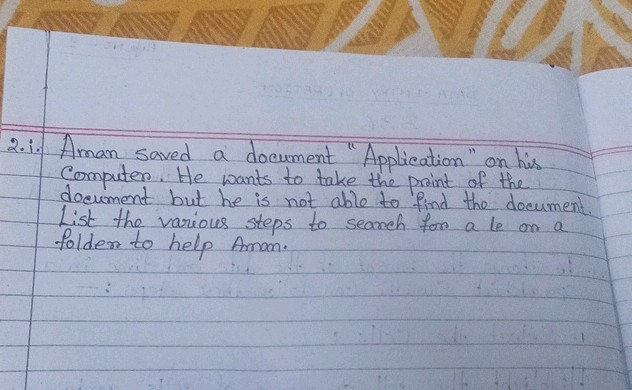 2.i. Aman saved a document "Application" on his
Computer. He wants to take the print of the
document but he is not able to find the document.
List the various steps to search for a le on a
folder to help Aman.